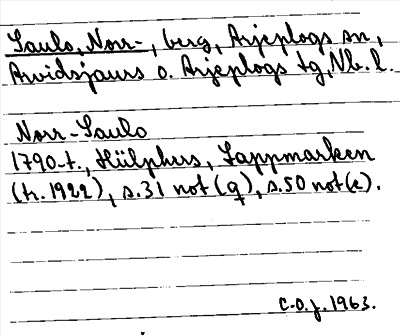 Saulo, Norr-, berg, Arjeplogs sn,
Arvidsjaurs o. Arjeplogs tg, Nb. l.
Norr-Saulo
1790-t., Hülphers, Lappmarken
(tr. 1922), s. 31 not (q), s. 50 not (c).
C.O.J. 1963.